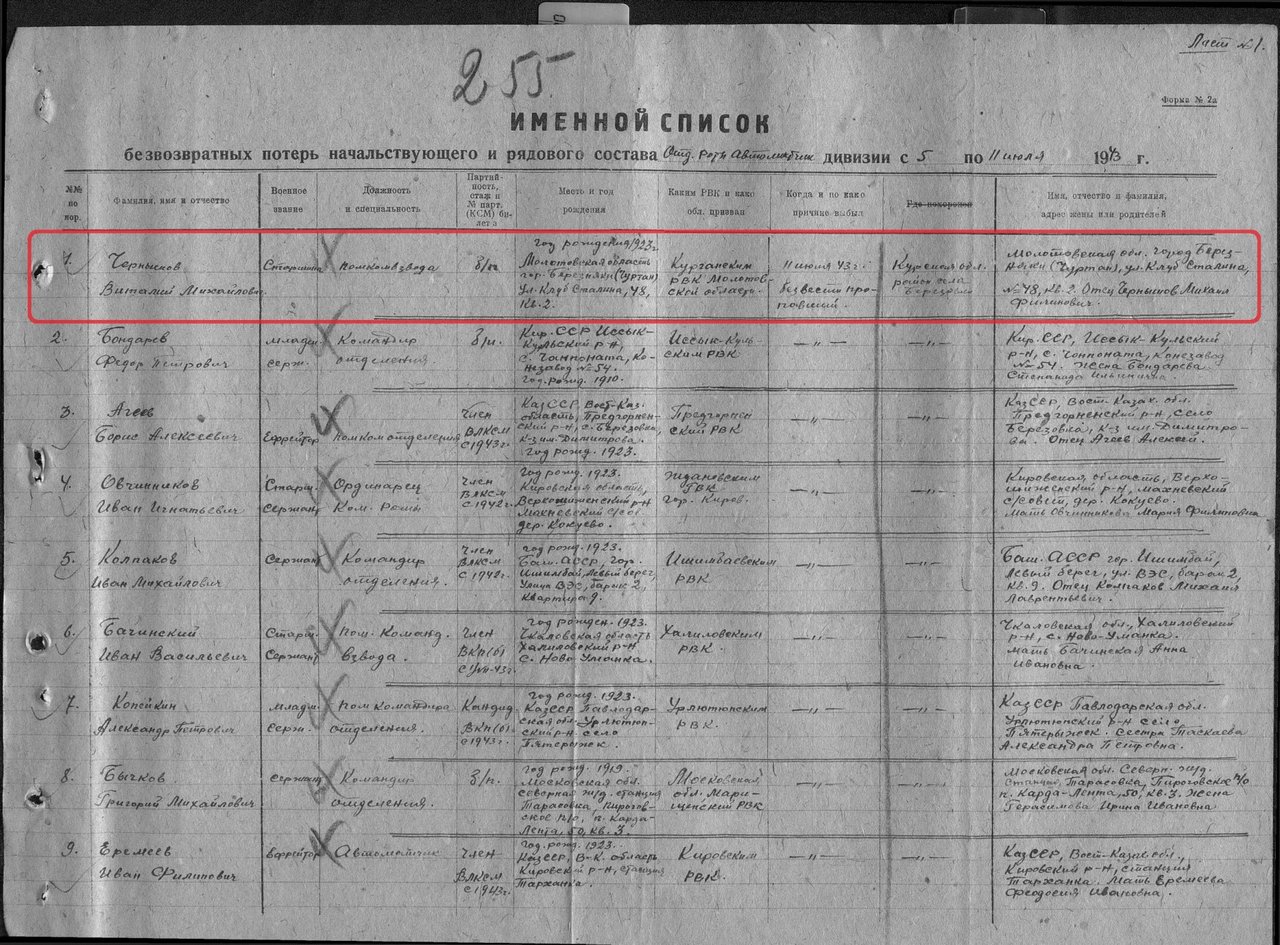 Лист №1.
255
Форма № 2а
ИМЕННОЙ СПИСОК
безвозвратных потерь начальствующего и рядового состава Отд. Роты Автоматчик дивизии с 5 по 11 июля 1943 г.
№№ по пор.
Фамилия, имя и отчество
Военное звание
Должность и специальность
Партийность, стаж и № парт. (КСМ) билета
Место и год рождения
Каким РВК и как обл. призван
Когда и по како причине выбыл
Где похоронен
Имя, отчество и фамилия, адрес жены или родителей
1.
Чернышов
Виталий Михайлович
Старшина
помкомвзвода
б/п.
год рождения 1923г.
Молотовская область
гор. Березняки (Чуртан)
ул. Клуб Сталина, 48,
Кв. 2.
Курганским
РВК Молотовской области.
11 июля 43 г.
без вести пропавший.
Курская обл.
район села
Молотовская обл. город Березняки (Чуртан), ул. Клуб Сталина,
№48, кв. 2. Отец Чернышов Михаил
Филипович.
2.
Бондарев
Федор Петрович
младш.
серж.
Командир
отделения.
б/п.
Кир. ССР Иссык-
Кульский р-н,
с. Чонпоната, Ко-
незавод №54.
год. рожд. 1910.
Иссык-Куль-
ским РВК
—„—
—„—
Кир. ССР, Иссык-Кульский
р-н, с. Чонпоната, Конезавод
№54. Жена Бондарева
Степанида Ильинична.
3.
Агеев
Борис Алексеевич
Ефрейтор
помком отделения
Член
ВЛКСМ
с 1943г.
КазССР, Вост-Каз.
область, Предгорнен-
ский р-н, с. Березовка,
к-з им. Димитрова.
год рожд. 1923.
Предгорнен
ский РВК
—„—
—„—
КазССР, Вост. Казах. обл.
Предгорненский р-н, село
Березовка, к-з им. Димитро-
ва. Отец Агеев Алексей.
4.
Овчинников
Иван Игнатьевич
Старш.
сержант
Ординарец
Ком. роты
Член
ВЛКСМ
с 1942г.
год рожд. 1923.
Кировская область,
Верхошиженский р-н
Махневский с/сов.
дер. Кокуево.
Ждановским
ГВК
гор. Киров.
—„—
—„—
Кировская область, Верхо-
шиженский р-н, Махневский
с/совет, дер. Кокуево.
Мать Овчинникова Мария Филиповна
5.
Колпаков
Иван Михайлович
Сержант
Командир
отделения.
Член
ВЛКСМ
с 1942г.
год рожд. 1923.
Баш. АССР, гор.
Ишимбай, Левый берег,
улица ВЭС, барак 2,
квартира 9.
Ишимбаевским
РВК
—„—
—„—
Баш. АССР гор. Ишимбай,
Левый берег, ул. ВЭС, барак 2,
кв. 9. Отец Колпаков Михаил
Лаврентьевич.
6.
Бачинский
Иван Васильевич
Старш.
Сержант
пом. Команд.
взвода.
Член
ВКП(б)
год. рожден. 1923.
Чкаловская область
Халиловский р-н
с. Ново-Уманка.
Халиловским
РВК.
—„—
—„—
Чкаловская обл., Халиловский
р-н, с. Ново-Уманка.
мать Бачинская Анна
Ивановна.
7.
Копейкин
Александр Петрович
младш.
Серж.
пом командира
отделения.
Кандид.
ВКП(б)
с 1943г.
год рожд. 1923.
КазССР Павлодар-
ская обл. Урлютюп-
ский р-н село
Пятерыжск.
Урлютюпским
РВК.
—„—
—„—
КазССР Павлодарская обл.
Урлютюпский р-н село
Пятерыжск. Сестра Таскаева
Александра Петровна.
8.
Бычков
Григорий Михайлович
сержант
Командир
отделения.
б/п.
год рожд. 1919.
Московская обл.
Северная ж/д. станция
Тарасовка, Пирогов-
ское п/о, п. Карда-
Лента, 50, кв. 3.
Московской
обл. Мари-
щенский РВК
—„—
—„—
Московская обл. Северн. ж/д.
Станция Тарасовка, Пироговское п/о
п. Карда-Лента, 50, кв. 3. Жена
Герасимова Ирина Ивановна
9.
Еремеев
Иван Филипович
Ефрейтор
Автоматчик
Член
ВЛКСМ
с 1943г.
год рожд. 1923.
КазССР, В-К. область
Кировский р-н, станция
Тарханка.
Кировским
РВК.
—„—
—„—
КазССР, Вост-Казах. обл.,
Кировский р-н, станция
Тарханка. Мать Еремеева
Феодосия Ивановна.